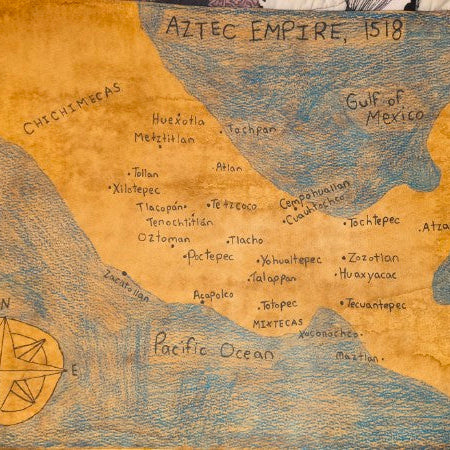 AZTEC EMPIRE, 1518
Gulf of
Mexico
CHICHIMECAS
Huexotla
Metztitlan
Tochpan
Atlan
Tollan
Xilotepec
Tlacopán
Tetzcoco
Tenochtitlán
Cempohuallan
Cuauhtochco
Tochtepec
Atza
Oztoman
Tlacho
Poctepec
Yohualtepec
Zozotlan
Talappan
Huaxyacac
Zacatollan
Acapolco
Totopec
Tecuantepec
MIXTECAS
Xoconochco
Maztlan
Pacific Ocean
N
E